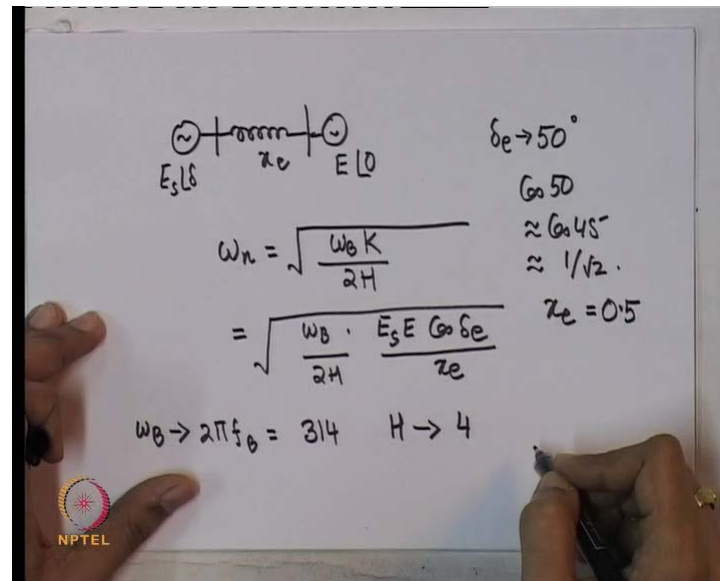 E_s∠δ
x_e
E∠0
δ_e → 50°
Cos 50
≈ Cos 45
≈ 1/√2.
x_e = 0.5
ω_n = √(ω_B K / 2H)
= √(ω_B / 2H · E_s E Cos δ_e / x_e)
ω_B → 2πf_B = 314 H → 4
NPTEL